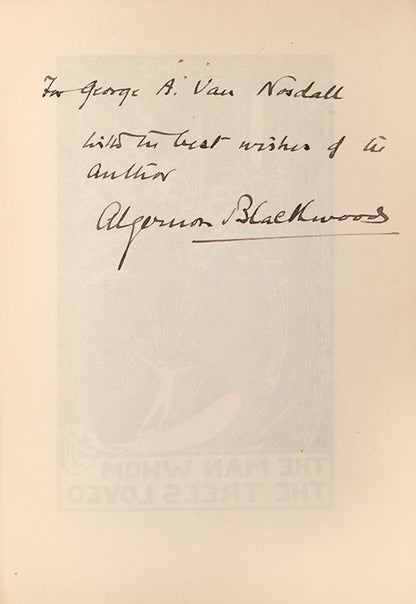 For George A. Van Nosdall
with the best wishes of the
author
Algernon Blackwood
THE MAN WHOM
THE TREES LOVED